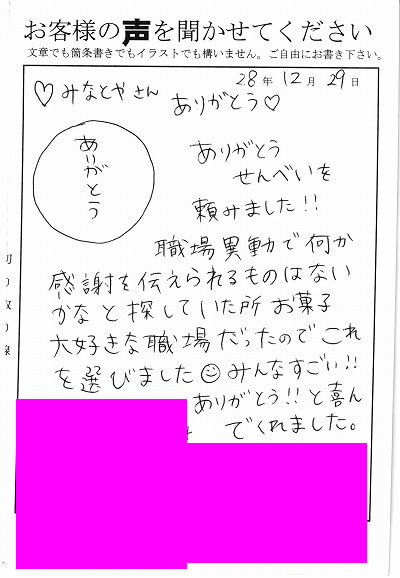 お客様の声を聞かせてください
文章でも箇条書きでもイラストでも構いません。ご自由にお書き下さい。
28年12月29日
♡みなとやさん
ありがとう♡
ありがとう
ありがとう
せんべいを
頼みました!!
職場異動で何か
感謝を伝えられるものはない
かなと探していた所 お菓子
大好きな職場だったのでこれ
を選びました☺みんなすごい!!
ありがとう!!と喜ん
でくれました。